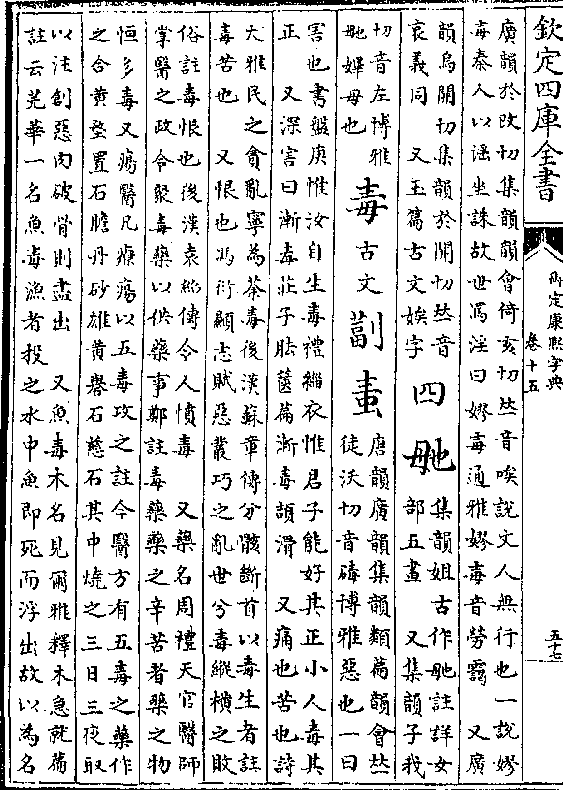 欽定四庫全書
御定康熙字典
卷十五
五十七
廣韻於改切集韻韻會倚亥切𠀤音唉說文人無行也一說嫪
毐秦人以淫坐誅故世罵淫曰嫪毐通雅嫪毐音勞靄　又廣
韻烏開切集韻於開切𠀤音
哀義同　又玉篇古文娭字
四
毑
集韻姐古作毑註詳女
部五畫　又集韻子我
切音左博雅
毑婢母也
毒
古文
𧉅
唐韻廣韻集韻類篇韻會𠀤
徒沃切音碡博雅惡也一曰
害也書盤庚惟汝自生毒禮緇衣惟君子能好其正小人毒其
正　又深害曰漸毒莊子胠篋篇漸毒頡滑　又痛也苦也詩
大雅民之貪亂寧為荼毒後漢蘇章傳分骸斷首以毒生者註
毒苦也　又恨也馮衍顯志賦惡叢巧之亂世兮毒縱橫之敗
俗註毒恨也後漢袁紹傳令人憤毒　又藥名周禮天官醫師
掌醫之政令聚毒藥以供藥事鄭註毒藥藥之辛苦者藥之物
恒多毒又瘍醫凡療瘍以五毒攻之註今醫方有五毒之藥作
之合黃堥置石膽丹砂雄黃礜石慈石其中燒之三日三夜取
以注創惡肉破骨則盡出　又魚毒木名見爾雅釋木急就篇
註云芫華一名魚毒漁者投之水中魚即死而浮出故以為名